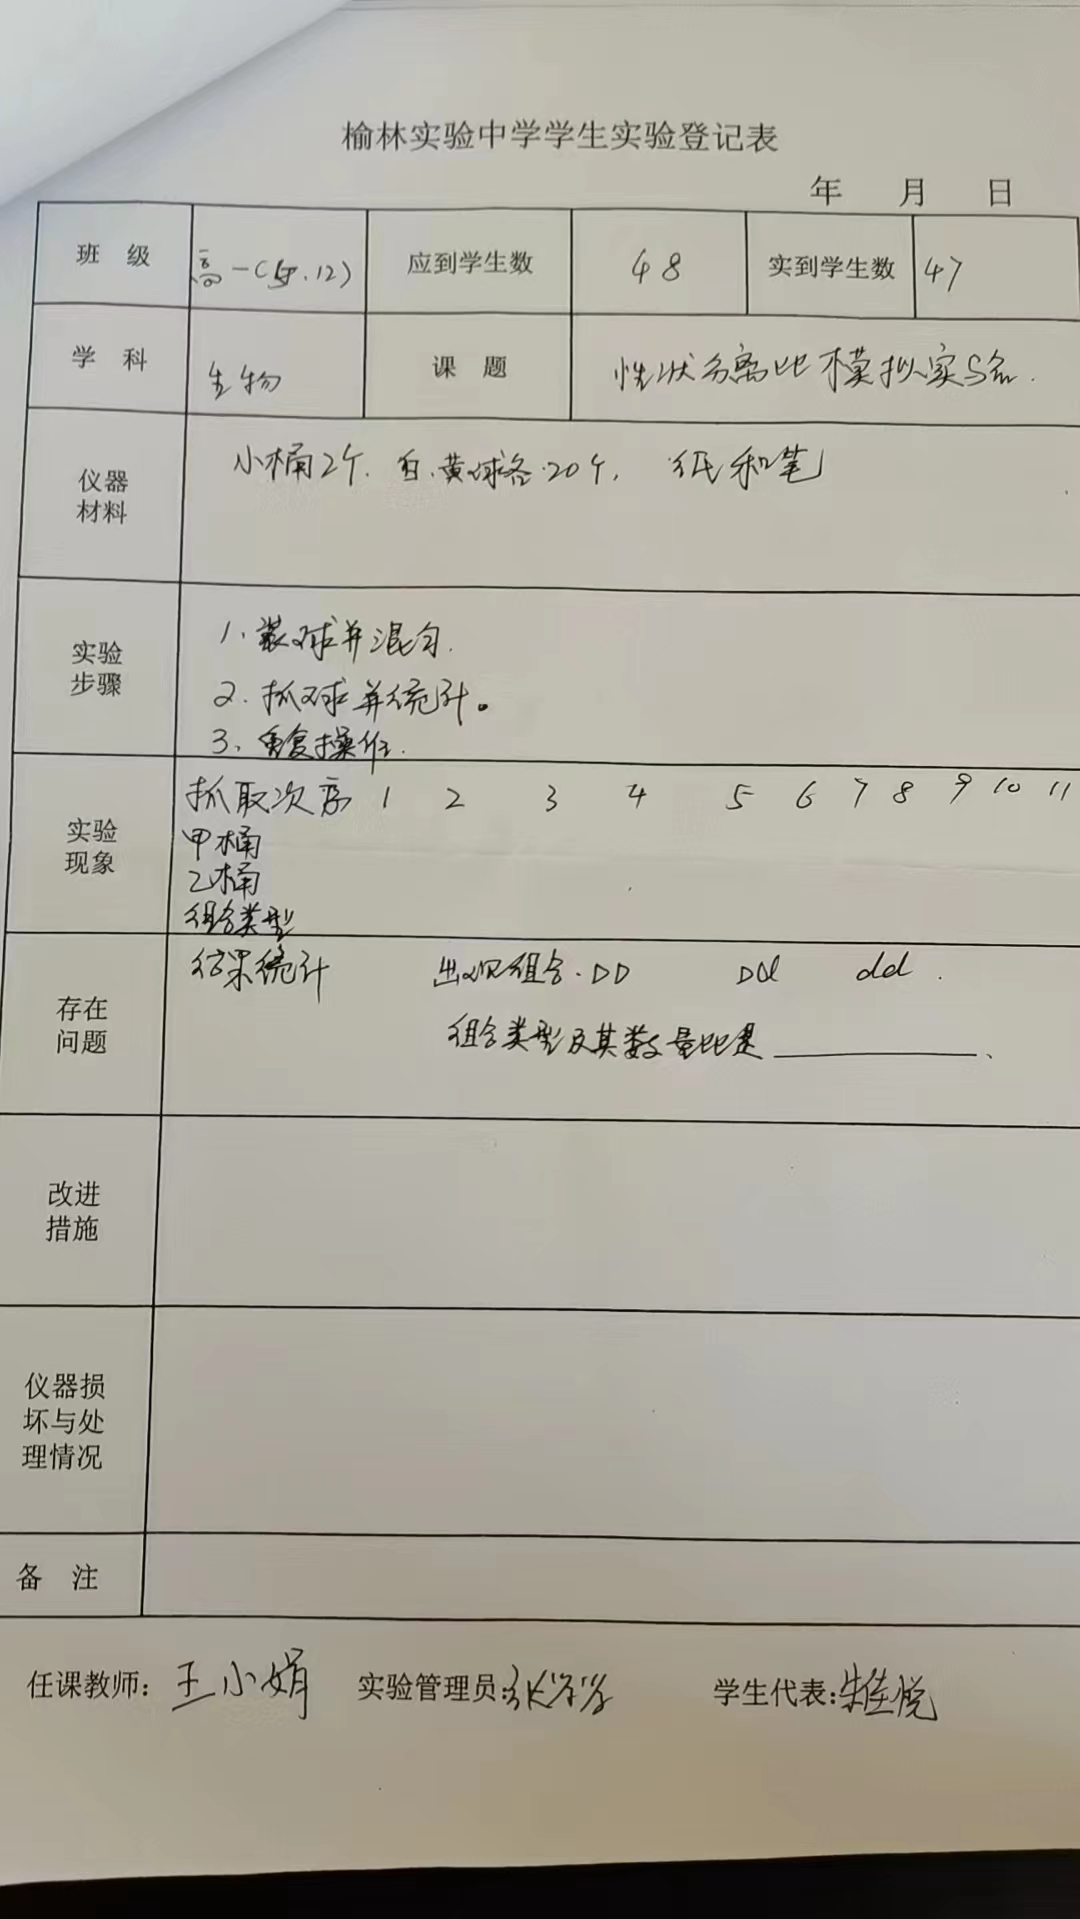 榆林实验中学学生实验登记表
年 月 日
班 级 高一( .12) 应到学生数 48 实到学生数 47
学 科 生物 课 题 性状分离比模拟实验.
仪器
材料
小桶2个. 白.黄球各20个, 纸和笔
实验
步骤
1、装球并混匀.
2.抓球并统计。
3、重复操作.
实验
现象
抓取次序 1 2 3 4 5 6 7 8 9 10 11
甲桶
乙桶
组合类型
存在
问题
结果统计 出现组合.DD Dd dd.
组合类型及其数量比是________、
改进
措施
仪器损
坏与处
理情况
备 注
任课教师: 王小娟 实验管理员: 学生代表: 朱佳悦